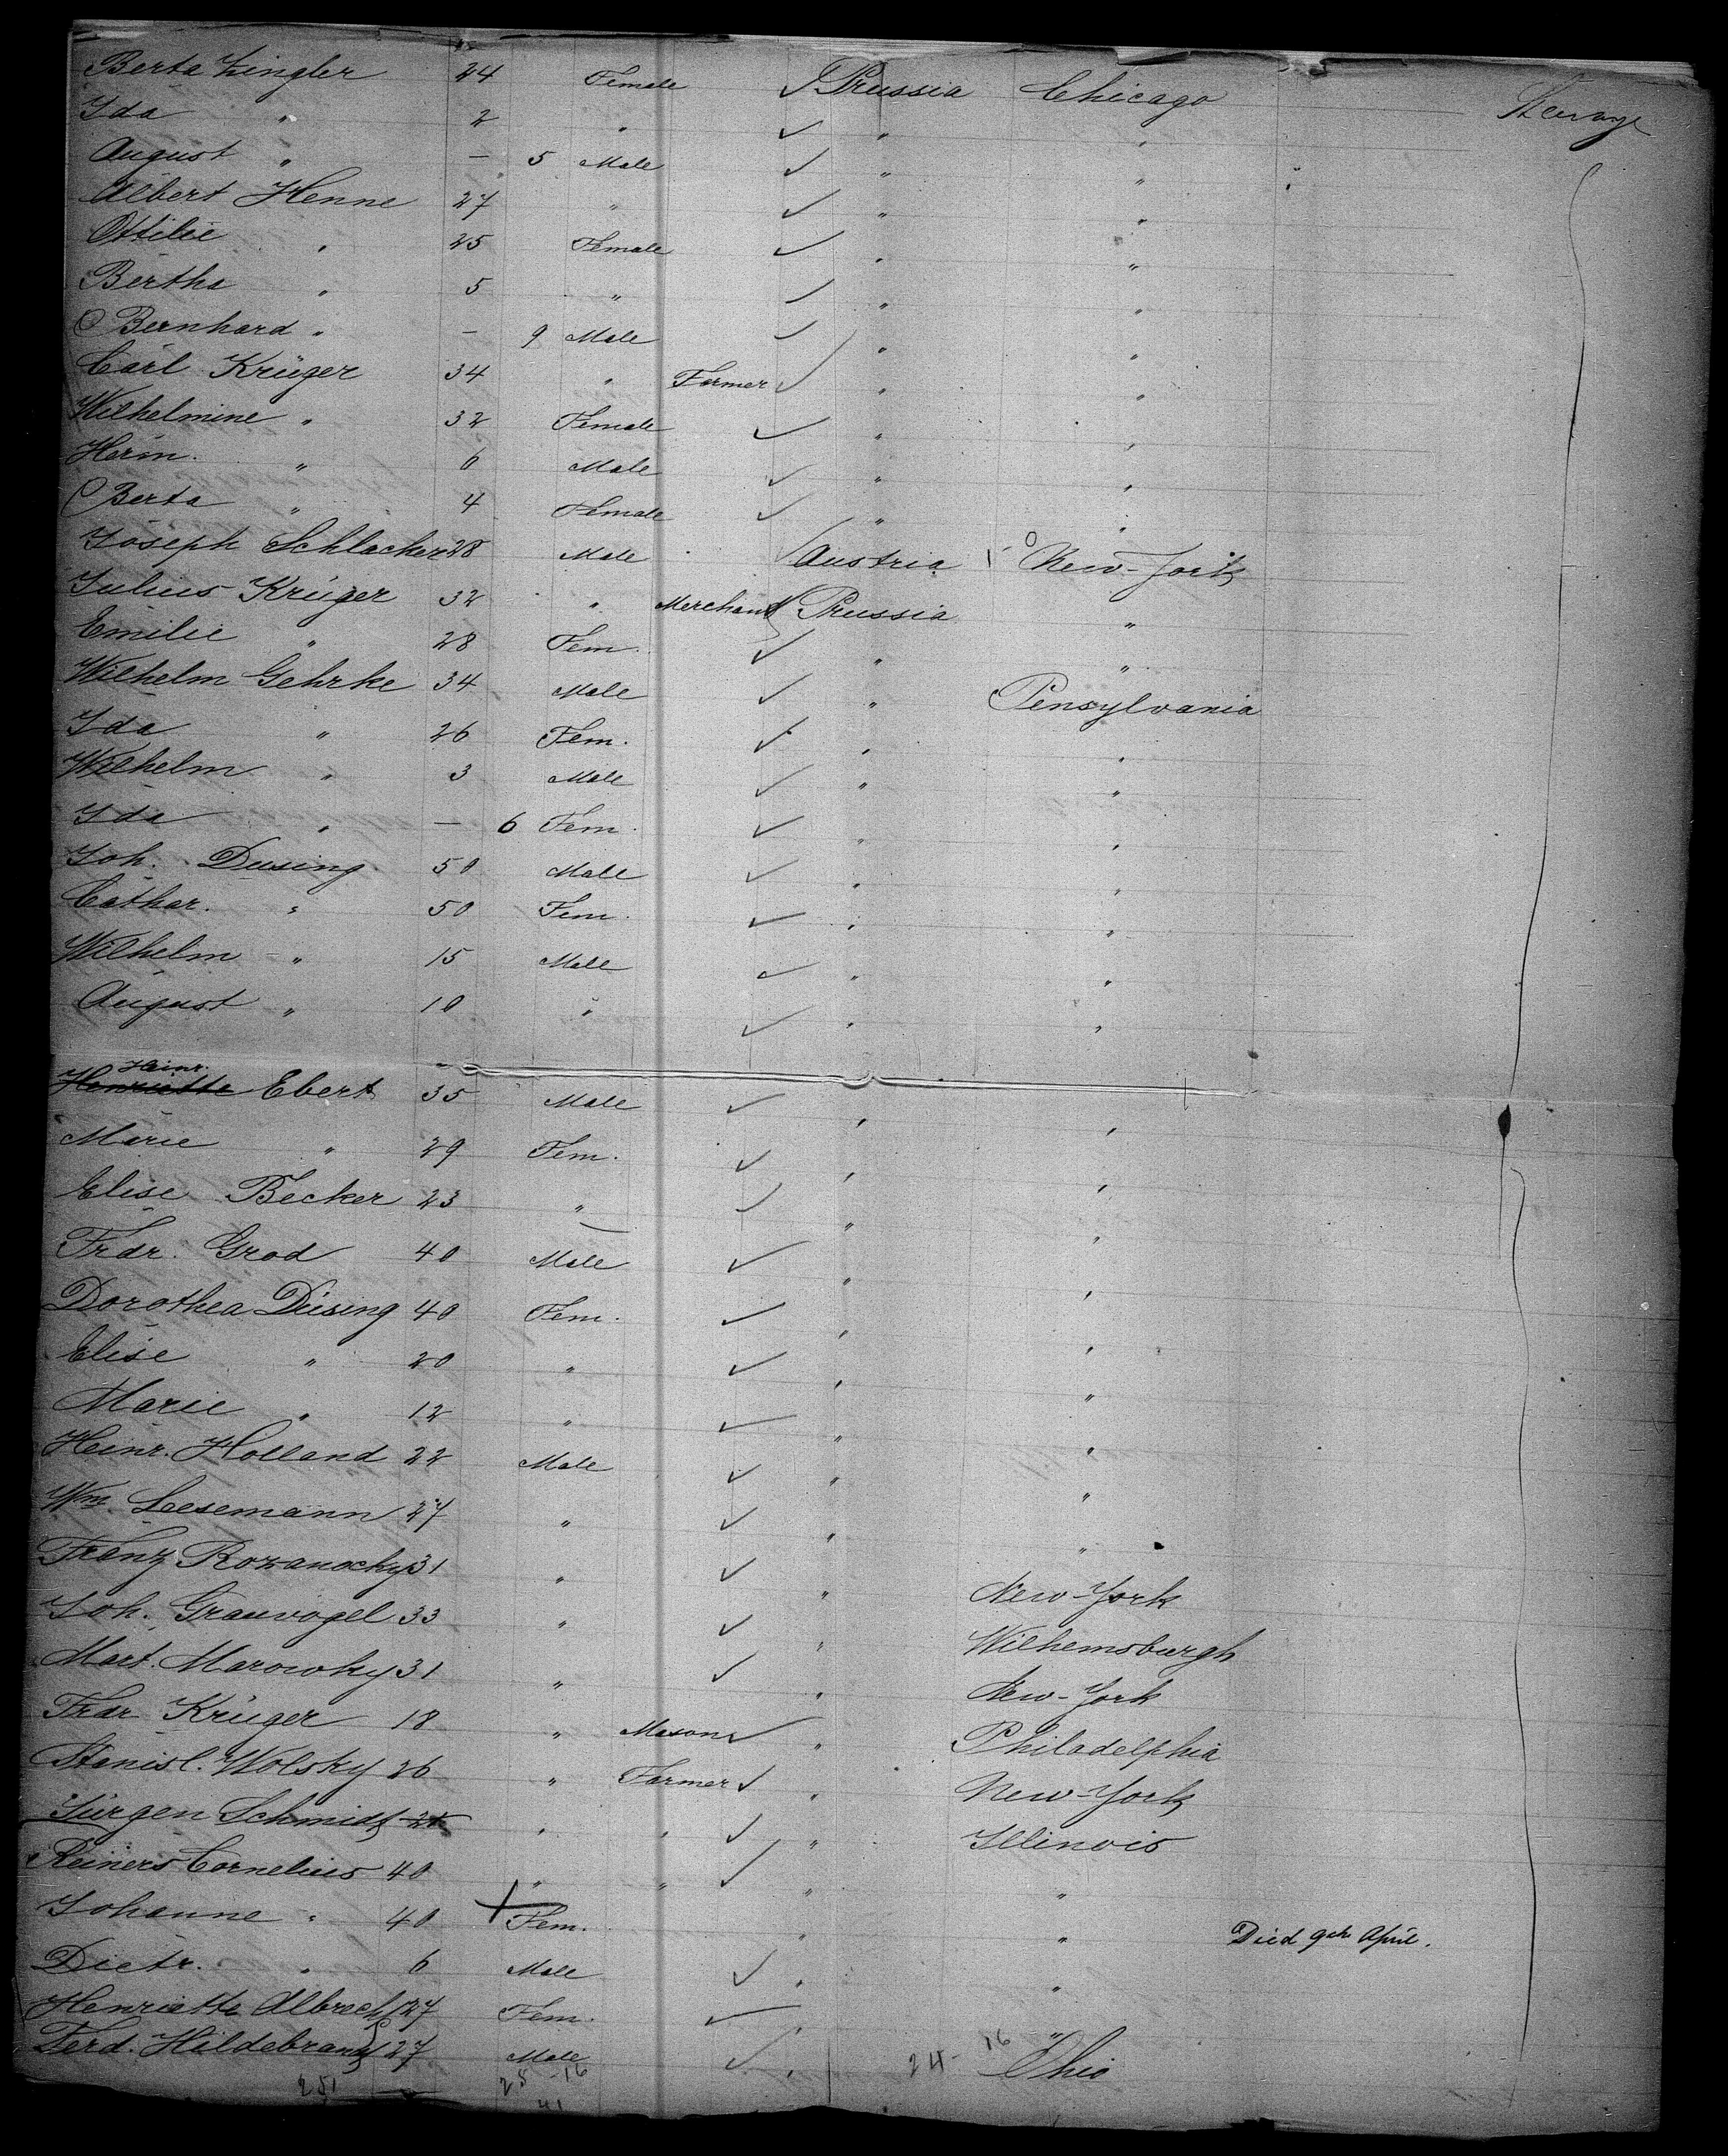 Berta Zingler 24 Female ✓ Prussia Chicago Steerage
Ida " 2 " ✓ " "
August " — 5 Male ✓ " "
Albert Henne 27 " ✓ " "
Ottilie " 25 Female ✓ " "
Bertha " 5 " ✓ " "
Bernhard " — 9 Male ✓ " "
Carl Krüger 34 " Farmer ✓ " "
Wilhelmine " 32 Female ✓ " "
Herm. " 6 Male ✓ " "
Berta " 4 Female ✓ " "
Joseph Schlacher 28 Male ✓ Austria New-York
Julius Krüger 32 " Merchant ✓ Prussia "
Emilie " 28 Fem. ✓ " "
Wilhelm Gehrke 34 Male ✓ " Pensylvania
Ida " 26 Fem. ✓ " "
Wilhelm " 3 Male ✓ " "
Ida " — 6 Fem. ✓ " "
Joh. Dusing 50 Male ✓ " "
Cathar. " 50 Fem. ✓ " "
Wilhelm " 15 Male ✓ " "
August " 10 " ✓ " "
Heinr.
Henriette Ebert 35 Male ✓ " "
Marie " 29 Fem. ✓ " "
Elise Becker 23 " ✓ " "
Frdr. Grod 40 Male ✓ " "
Dorothea Düsing 40 Fem. ✓ " "
Elise " 20 " ✓ " "
Marie " 12 " ✓ " "
Heinr. Holland 22 Male ✓ " "
Wm. Leesemann 27 " ✓ " "
Franz Rozanocky 31 " ✓ " New-York
Joh. Grauvogel 33 " ✓ " Wilhemsburgh
Mart. Marowky 31 " ✓ " New-York
Frdr Krüger 18 " Mason ✓ " Philadelphia
Stanisl. Wolsky 26 " Farmer ✓ " New-York
Jürgen Schmidt " " ✓ " Illinois
Reiners Cornelius 40 " " ✓ " "
Johanne " 40 Fem. " " Died 9th April.
Dietr. " 6 Male ✓ " "
Henriette Albrecht 27 Fem. ✓ " "
Ferd. Hildebrandt 27 Male ✓ " 24-16 Ohio
251 25-16
41